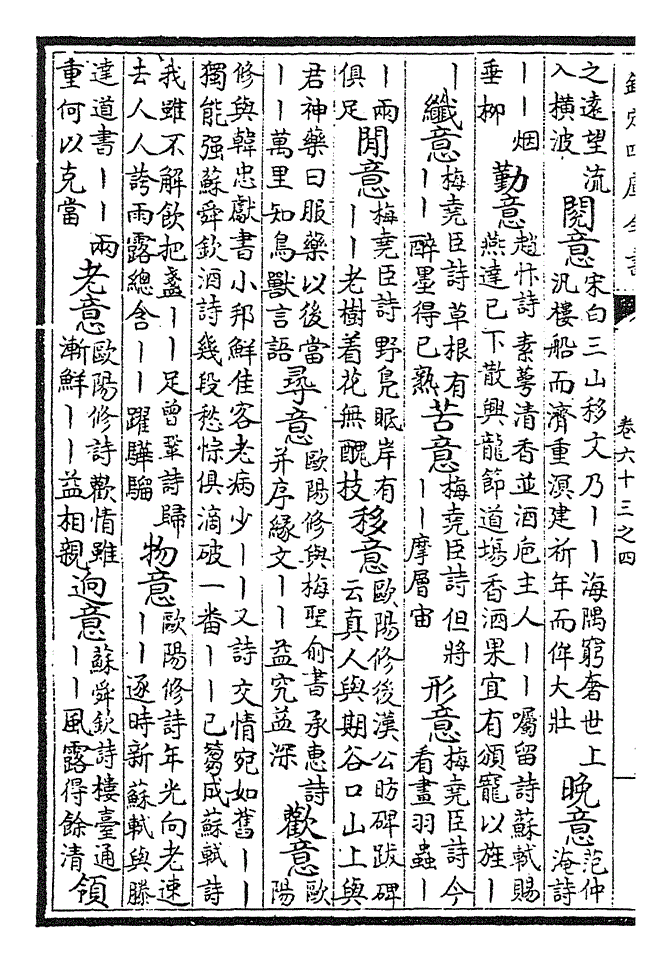 欽定四庫全書
卷六十三之四
之遠望流
入橫波
閱意
宋白三山移文乃丨丨海隅窮奢世上
汎樓船而濟重溟建祈年而侔大壯
晚意
范仲
淹詩
丨丨烟
垂柳
勤意
趙抃詩素萼清香並酒巵主人丨丨囑留詩蘇軾賜
燕達已下散興龍節道場香酒果宜有頒寵以旌丨
丨
纖意
梅堯臣詩草根有
丨丨醉墨得已熟
苦意
梅堯臣詩但將
丨丨摩層宙
形意
梅堯臣詩今
看畫羽蟲丨
丨兩
俱足
閒意
梅堯臣詩野鳧眠岸有
丨丨老樹着花無醜枝
移意
歐陽修後漢公昉碑跋碑
云真人與期谷口山上與
君神藥曰服藥以後當
丨丨萬里知鳥獸言語
尋意
歐陽修與梅聖俞書承惠詩
并序緣文丨丨益究益深
歡意
歐
陽
修與韓忠獻書小邦鮮佳客老病少丨丨又詩交情宛如舊丨丨
獨能强蘇舜欽酒詩幾段愁悰俱滴破一番丨丨已蒭成蘇軾詩
我雖不解飲把盞丨丨足曾鞏詩歸
去人人誇雨露總含丨丨躍驊騮
物意
歐陽修詩年光向老速
丨丨逐時新蘇軾與滕
達道書丨丨兩
重何以克當
老意
歐陽修詩歡情雖
漸鮮丨丨益相親
逈意
蘇舜欽詩樓臺通
丨丨風露得餘清
領